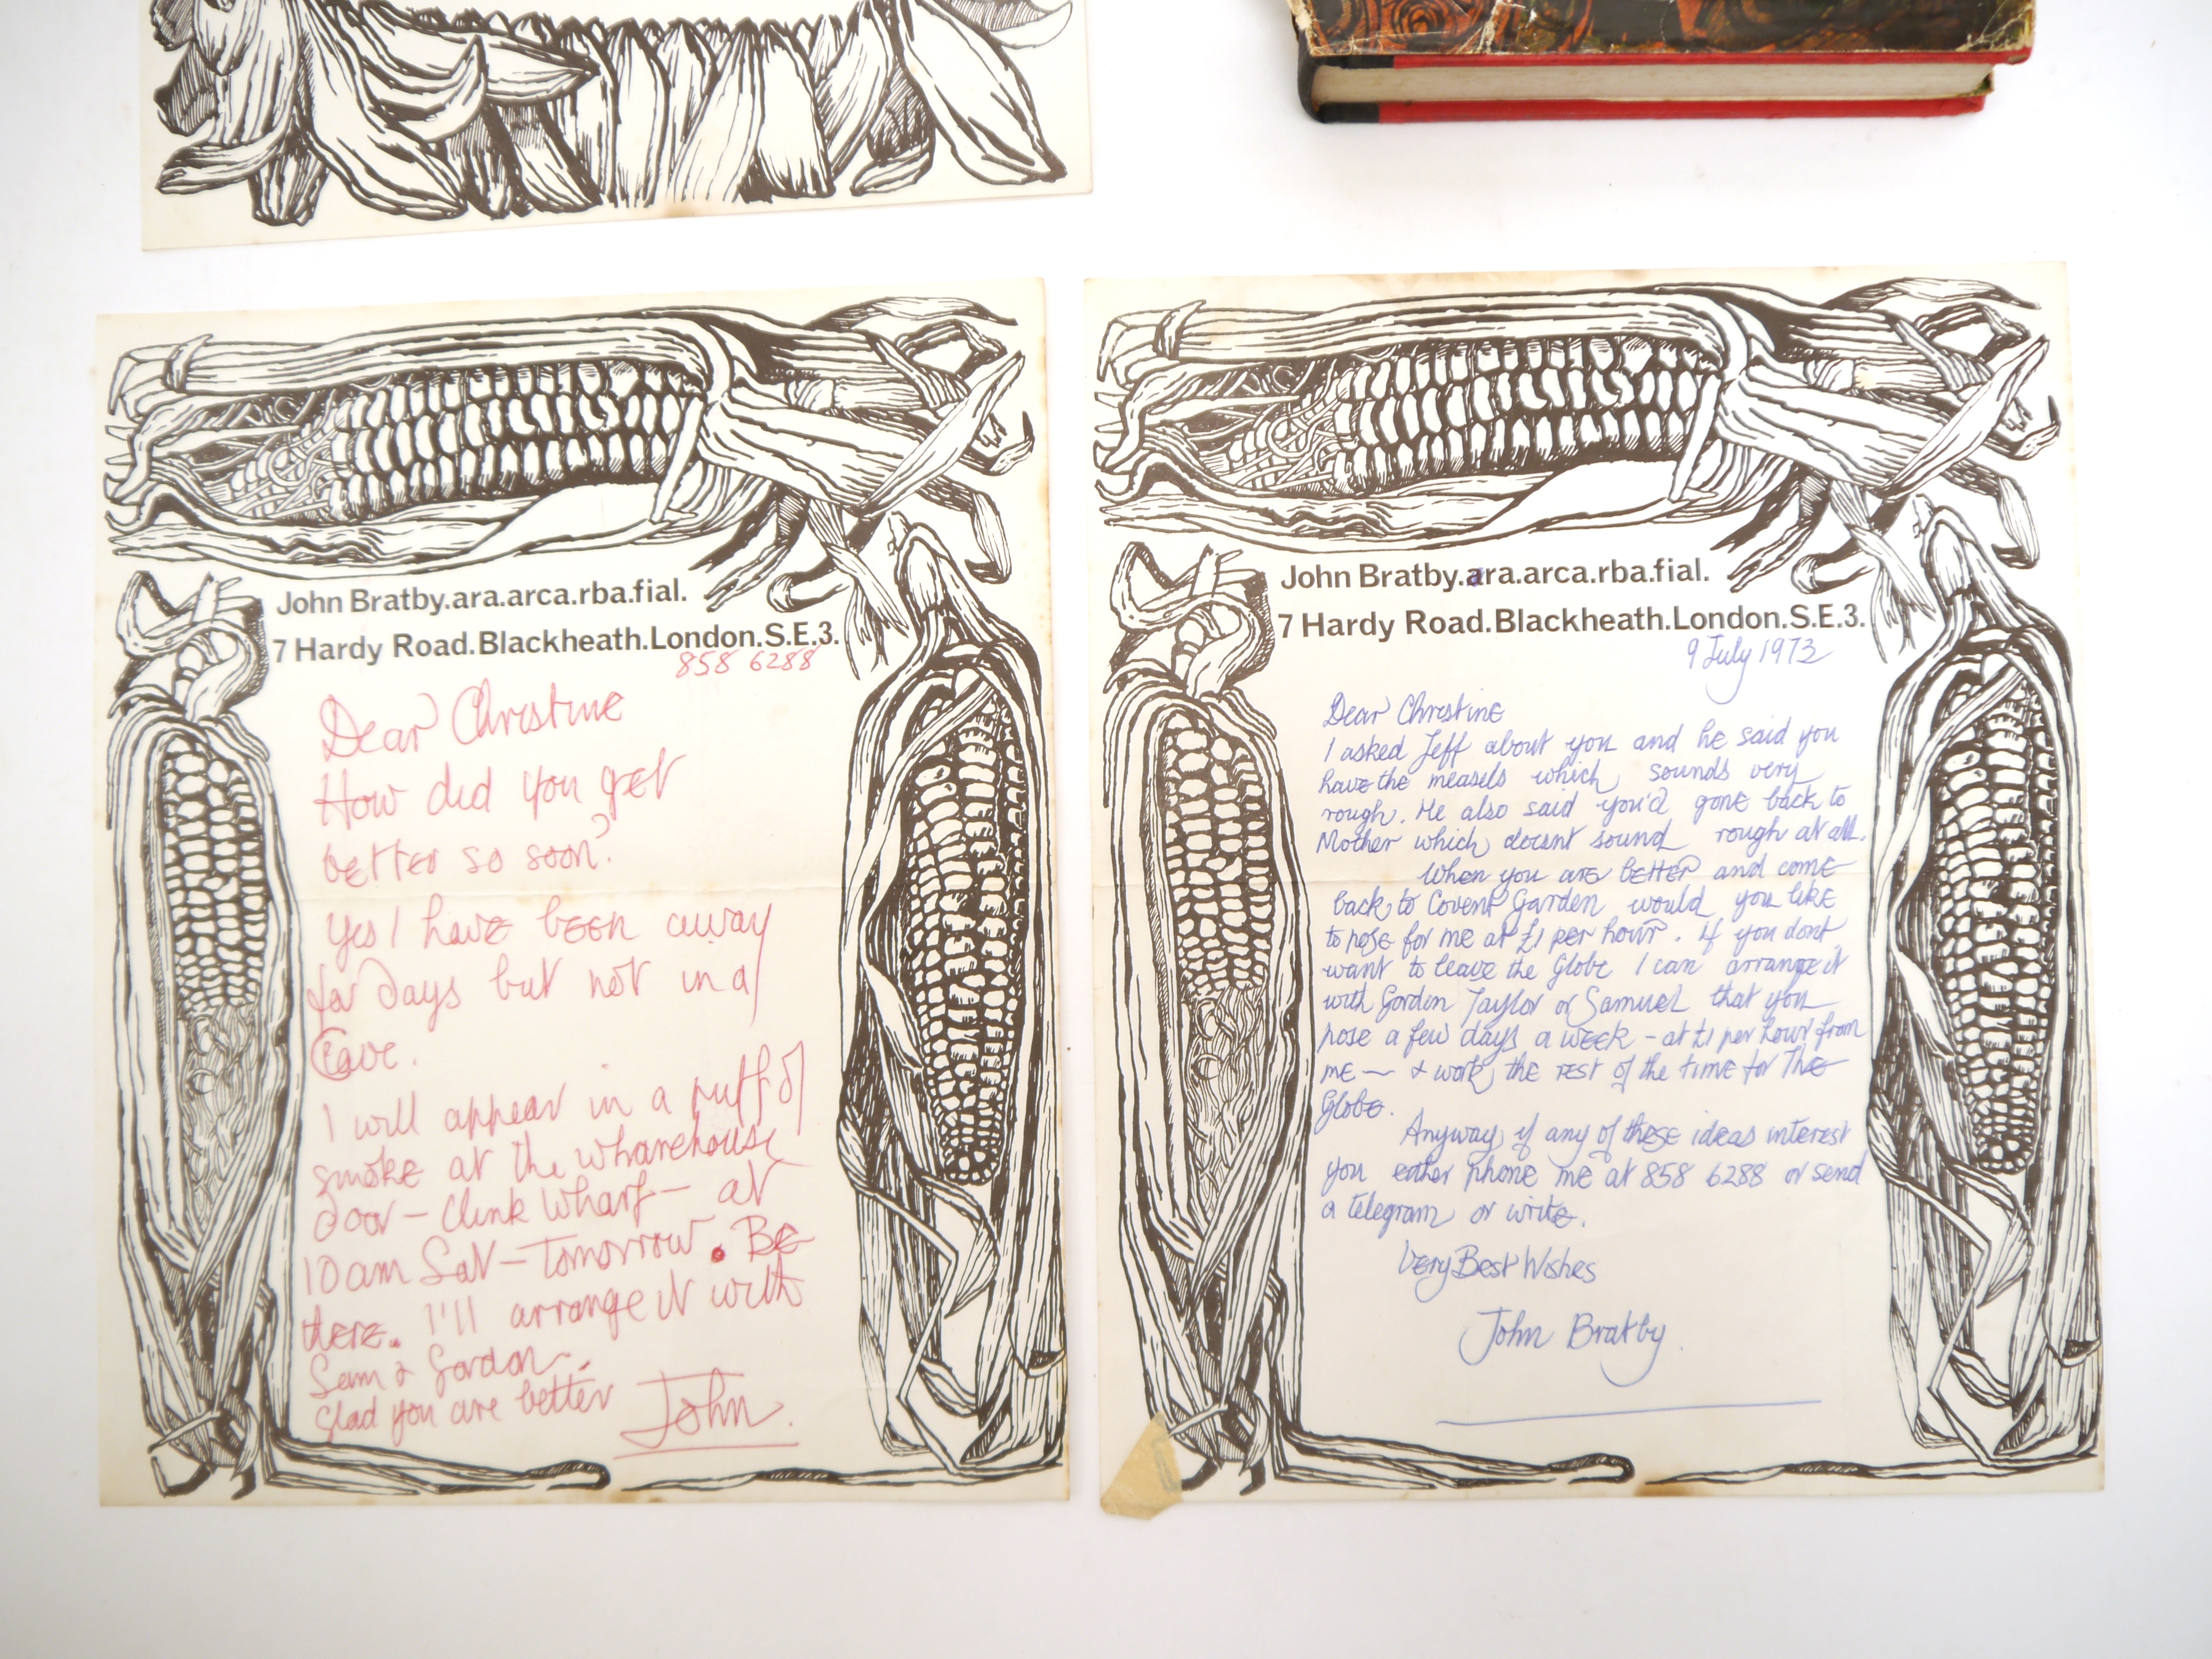 John Bratby.ara.arca.rba.fial.
7 Hardy Road.Blackheath.London.S.E.3.
858 6288
Dear Christine
How did you get
better so soon?
Yes I have been away
for days but not in a
Cave.
I will appear in a puff of
smoke at the wharehouse
door – Clink Wharf – at
10am Sat – Tomorrow. Be
there. I'll arrange it with
Sam & Gordon.
Glad you are better
John.
John Bratby.ara.arca.rba.fial.
7 Hardy Road.Blackheath.London.S.E.3.
9 July 1973
Dear Christine
I asked Jeff about you and he said you
have the measels which sounds very
rough. He also said you'd gone back to
Mother which doesnt sound rough at all.
When you are better and come
back to Covent Garden would you like
to pose for me at £1 per hour. If you dont
want to leave the Globe I can arrange it
with Gordon Taylor or Samuel that you
pose a few days a week – at £1 per hour from
me — & work the rest of the time for The
Globe.
Anyway if any of these ideas interest
you either phone me at 858 6288 or send
a telegram or write.
Very Best Wishes
John Bratby.